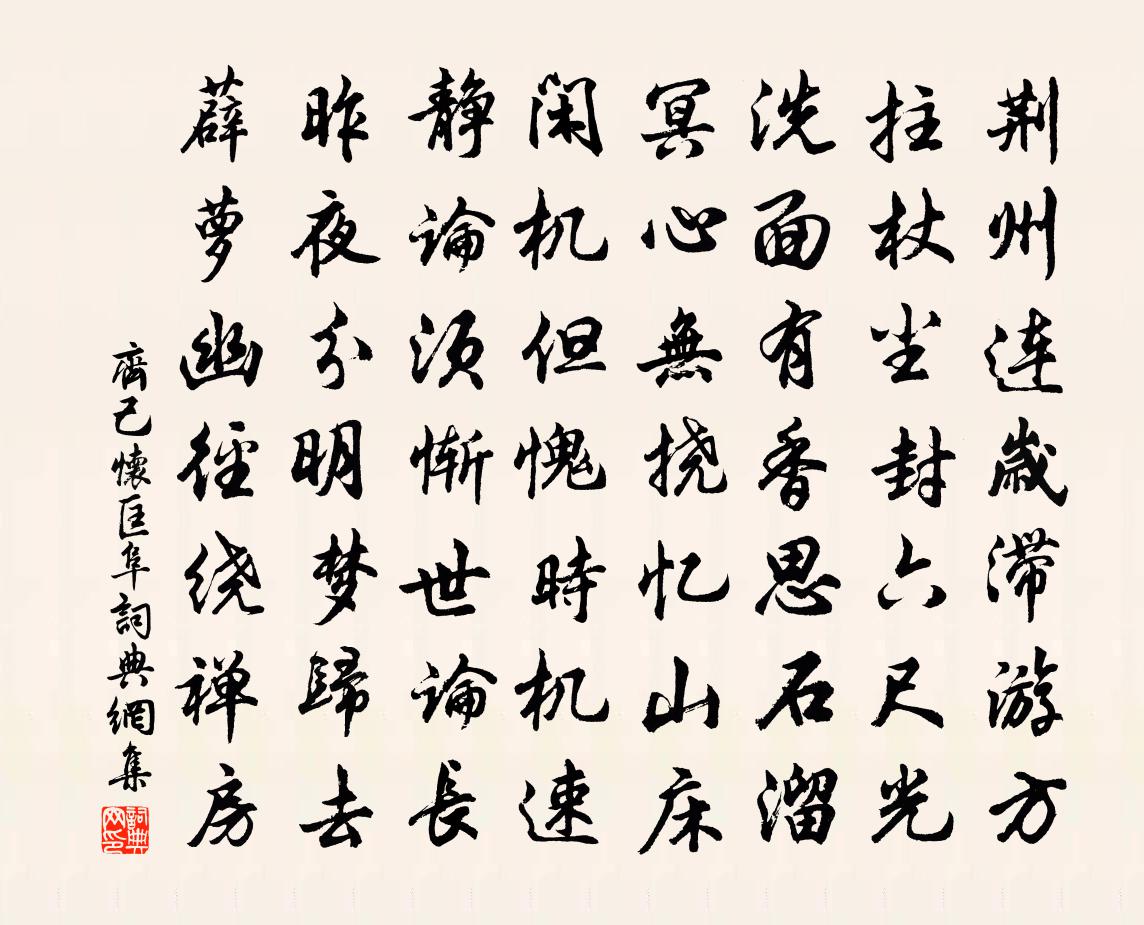 荆州连岁滞游方
拄杖尘封六尺光
洗面有香思石溜
冥心無挠忆山床
闲机但愧時机速
静论须惭世论長
昨夜分明梦歸去
薜萝幽径绕禅房
齊己懷匡阜詞典網集
詞典网印